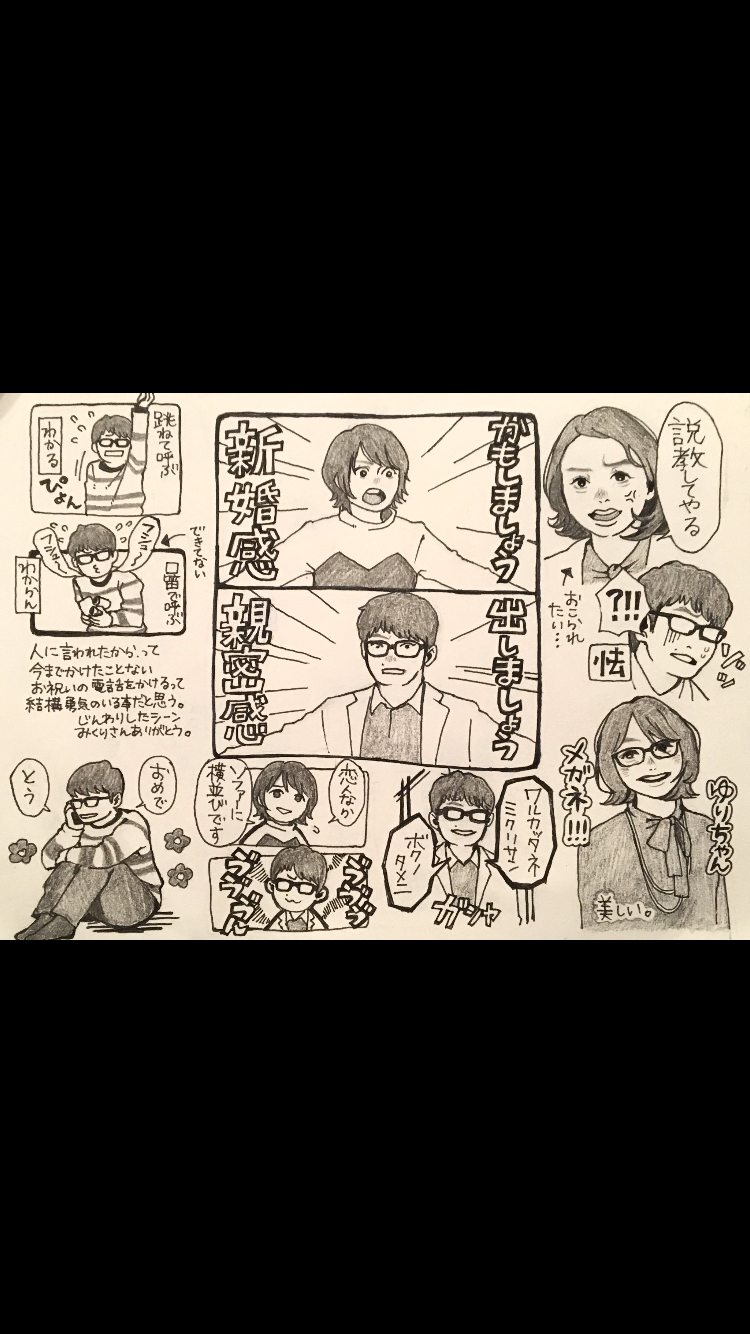 跳ねて呼ぶ
わかる
ぴょん
口笛で呼ぶ
フシュー
フシュー
できてない
わからん
人に言われたからって
今までかけたことない
お祝いの電話をかけるって
結構勇気のいる事だと思う。
じんわりしたシーン
みくりさんありがとう。
おめで
とう
かもしましょう
新婚感
出しましょう
親密感
恋なか
ソファーに
横並びです
ブンブン
ブンブン
ワルカッタネ
ミクリサン
ボクノ
タメニ
ガシャ
説教してやる
おこられ
たい…
?!!
怯
ゾッ
ゆりちゃん
メガネ!!!
美しい。